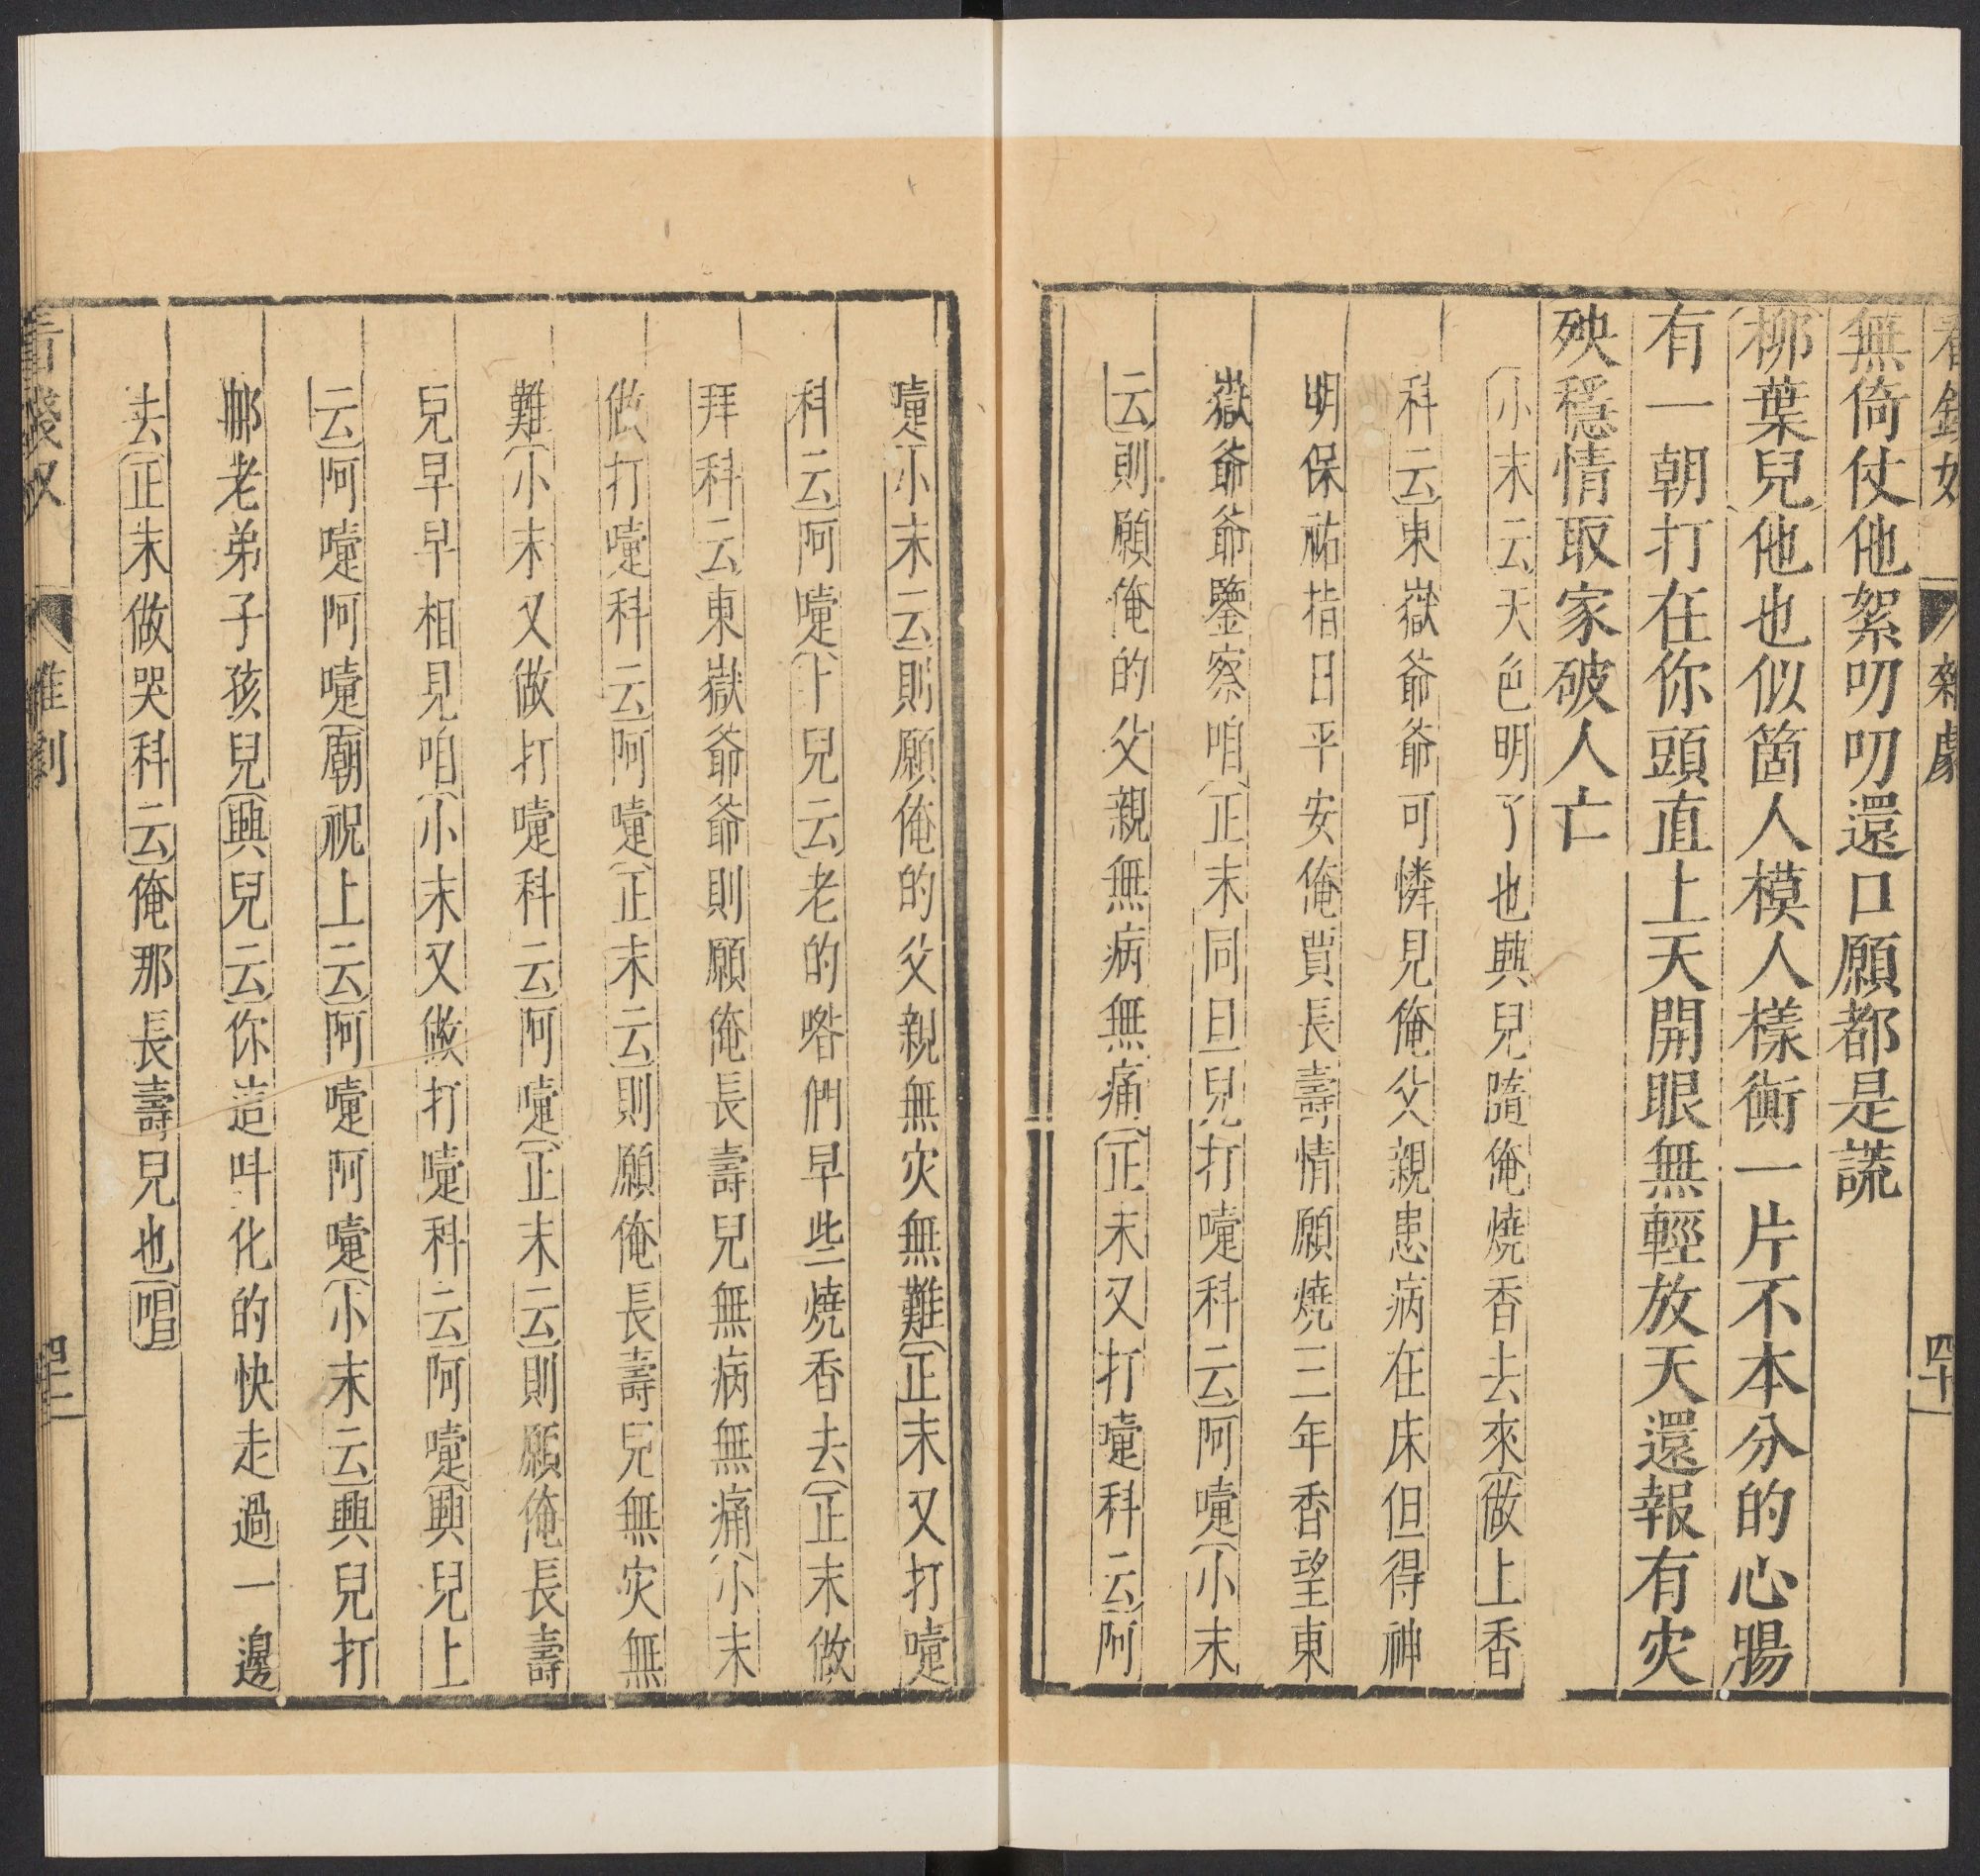 看錢奴 雜劇 四十
無倚仗他絮叨叨還口願都是謊
柳葉兒他也似箇人模人樣衠一片不本分的心腸
有一朝打在你頭直上天開眼無輕放天還報有灾
殃穩情取家破人亡
小末云天色明了也興兒隨俺燒香去來做上香
科云東嶽爺爺可憐見俺父親患病在床但得神
明保祐指日平安俺買長壽情願燒三年香望東
嶽爺爺鑒察咱正末同旦兒打嚏科云阿嚏小末
云則願俺的父親無病無痛正末又打嚏科云阿
嚏小末云則願俺的父親無灾無難正末又打嚏
科云阿嚏卜兒云老的喒們早些燒香去正末做
拜科云東嶽爺爺則願俺長壽兒無病無痛小末
做打嚏科云阿嚏正末云則願俺長壽兒無灾無
難小末又做打嚏科云阿嚏正末云則願俺長壽
兒早早相見咱小末又做打嚏科云阿嚏興兒上
云阿嚏阿嚏廟祝上云阿嚏阿嚏小末云興兒打
那老弟子孩兒興兒云你這叫化的快走過一邊
去正末做哭科云俺那長壽兒也唱
看錢奴 雜劇